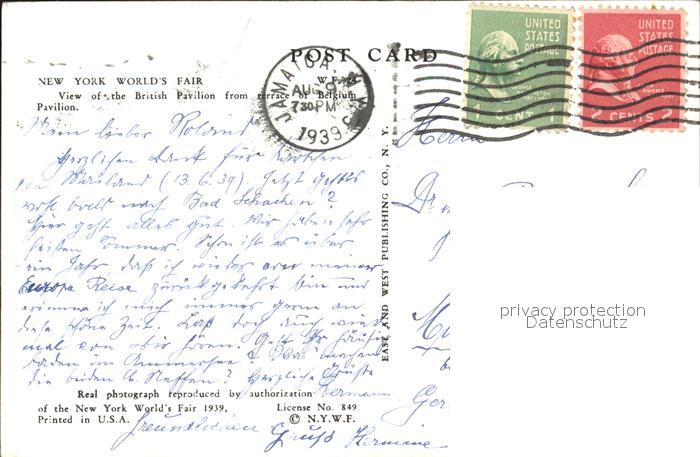 POST CARD
NEW YORK WORLD'S FAIR W.F.
View of the British Pavilion from terrace of Belgium
Pavilion.
JAMAICA
AUG 9
7 30 PM
1939
N.Y.
UNITED
STATES
POSTAGE
1 CENT 1
UNITED
STATES
POSTAGE
ADAMS
2 CENTS 2
Mein lieber Roland
Herzlichen Dank für Kärtchen
von Mailand (13.6.39). Jetzt geht's
wohl bald nach Bad Schachen?
Hier geht alles gut. Wir haben sehr
heißen Sommer. Schon ist es über
ein Jahr daß ich wieder von meiner
Europa Reise zurückgekehrt bin und
erinnere ich mich immer gern an
diese schöne Zeit. Laß doch auch wieder
mal von Dir hören. Geht Ihr häufig
baden im Ammersee? Was machen
die beiden Neffen? Herzliche Grüße
Hermann
Freundlichen Gruß Hermine
Herrn
Dr.
EAST AND WEST PUBLISHING CO., N. Y.
privacy protection
Datenschutz
Real photograph reproduced by authorization
of the New York World's Fair 1939, License No. 849
Printed in U.S.A. © N.Y.W.F.